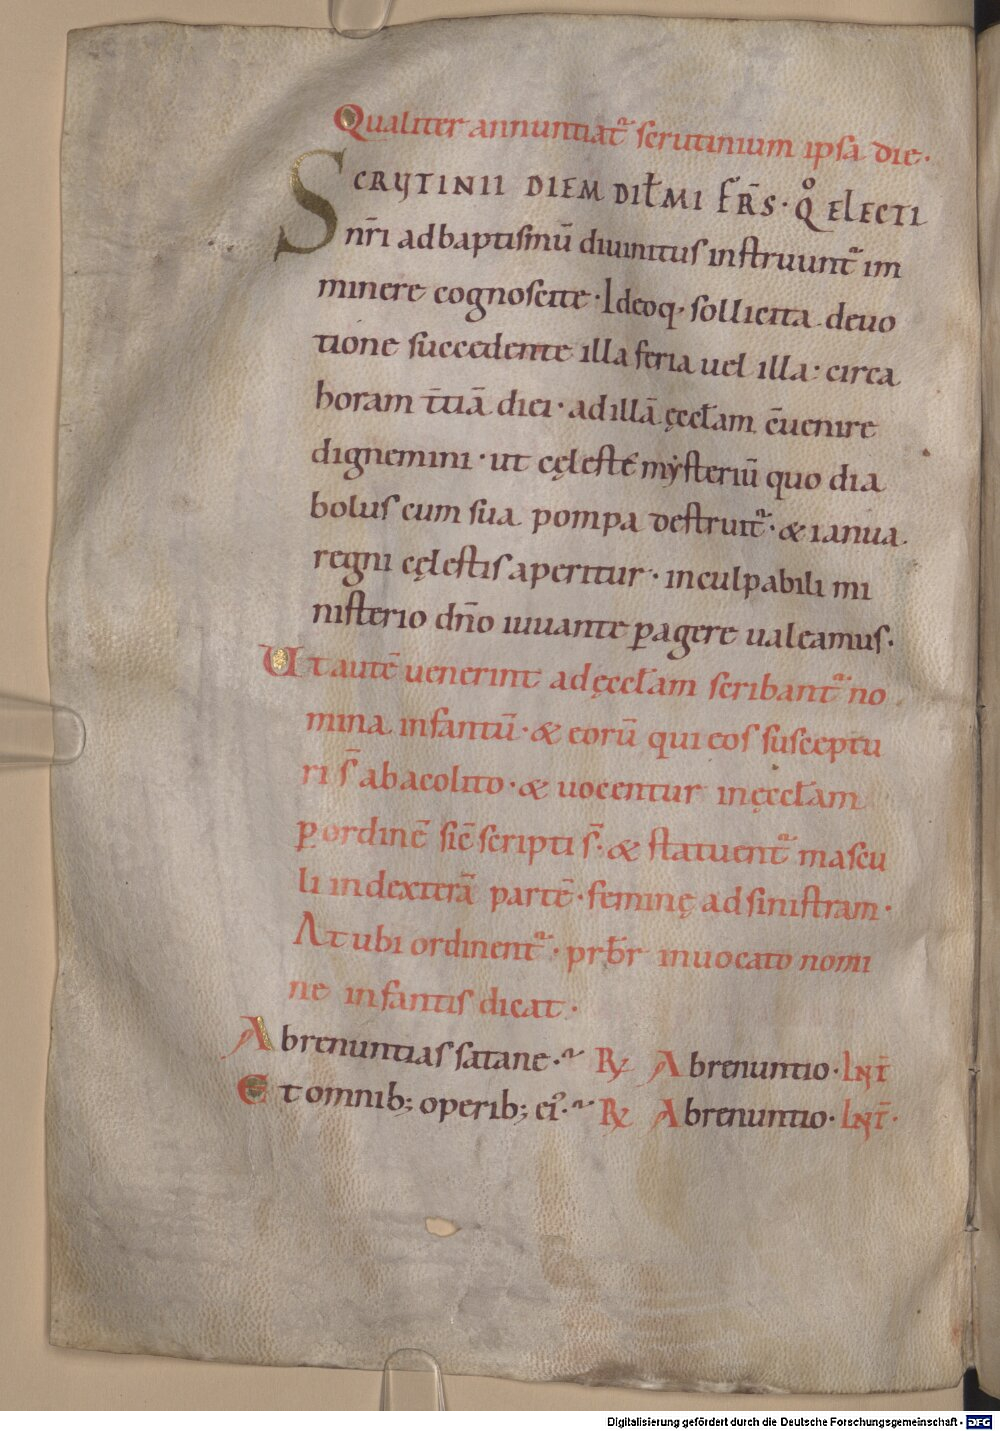 Qualiter annuntiat᷑ scrutinium ipsa die·
SCRUTINII DIEM DILMI FRS· Qͦ ELECTI
nr̄i ad baptismū diuinitus instruunt᷑ im
minere cognoscite· Ideoq· sollicita deuo
tione succedente illa feria uel illa· circa
horam t̄tiā diei· ad illā ęccłam c̄uenire
dignemini· ut cęlestē mẏsteriū quo dia
bolus cum sua pompa destruit᷑· & ianua
regni cęlestis aperitur· inculpabili mi
nisterio dn̄o iuuante ꝑagere ualeamus·
Ut autē uenerint ad ęccłam scribant᷑ no
mina infantū· & eorū qui eos susceptu
ri s̄ ab acolito· & uocentur in ęccłam
ꝑ ordinē sic̄ scripti s̄· & statuent᷑ mascu
li in dexterā partē· feminę ad sinistram·
At ubi ordinent᷑· prb̄r inuocato nomi
ne infantis dicat·
Abrenuntias satane· R̷ Abrenuntio· Int̄
Et omnib; operib; ei᷒· R̷ Abrenuntio· Int̄·
Digitalisierung gefördert durch die Deutsche Forschungsgemeinschaft - DFG